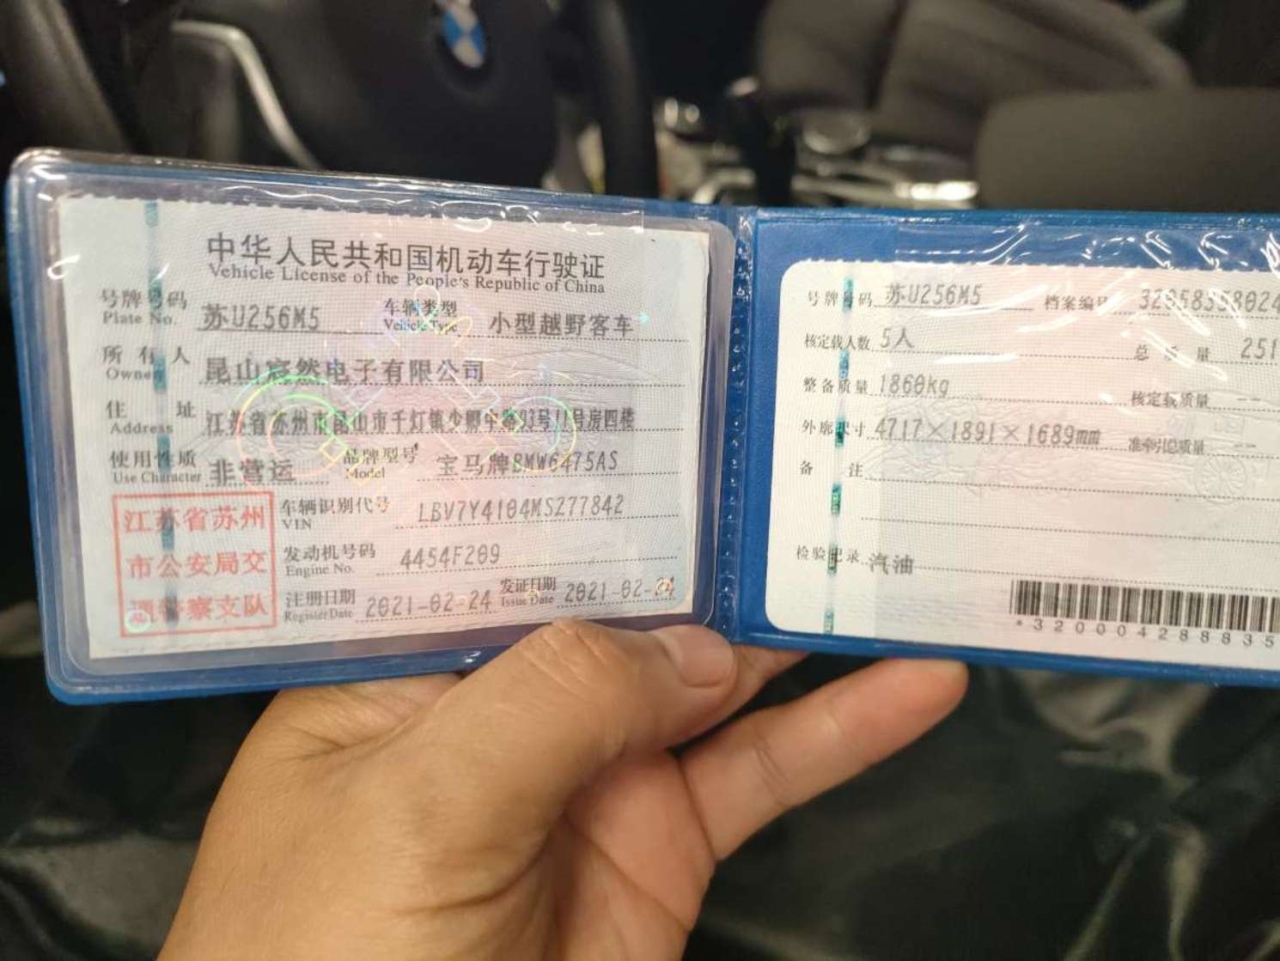 中华人民共和国机动车行驶证
Vehicle License of the People's Republic of China
号牌号码 苏U256M5 车辆类型 小型越野客车
Plate No. Vehicle Type
所有人 昆山宸然电子有限公司
Owner
住址 江苏省苏州市昆山市千灯镇少卿中路93号11号房四楼
Address
使用性质 非营运 品牌型号 宝马牌BMW6475AS
Use Character Model
江苏省苏州
市公安局交
通警察支队
车辆识别代号 LBV7Y4104MS277842
VIN
发动机号码 4454F209
Engine No.
注册日期 2021-02-24 发证日期 2021-02-24
Register Date Issue Date
号牌号码 苏U256M5 档案编号
核定载人数 5人 总质量
整备质量 1860kg 核定载质量 --
外廓尺寸 4717×1891×1689mm 准牵引总质量 --
备注
检验记录 汽油
*320004288835